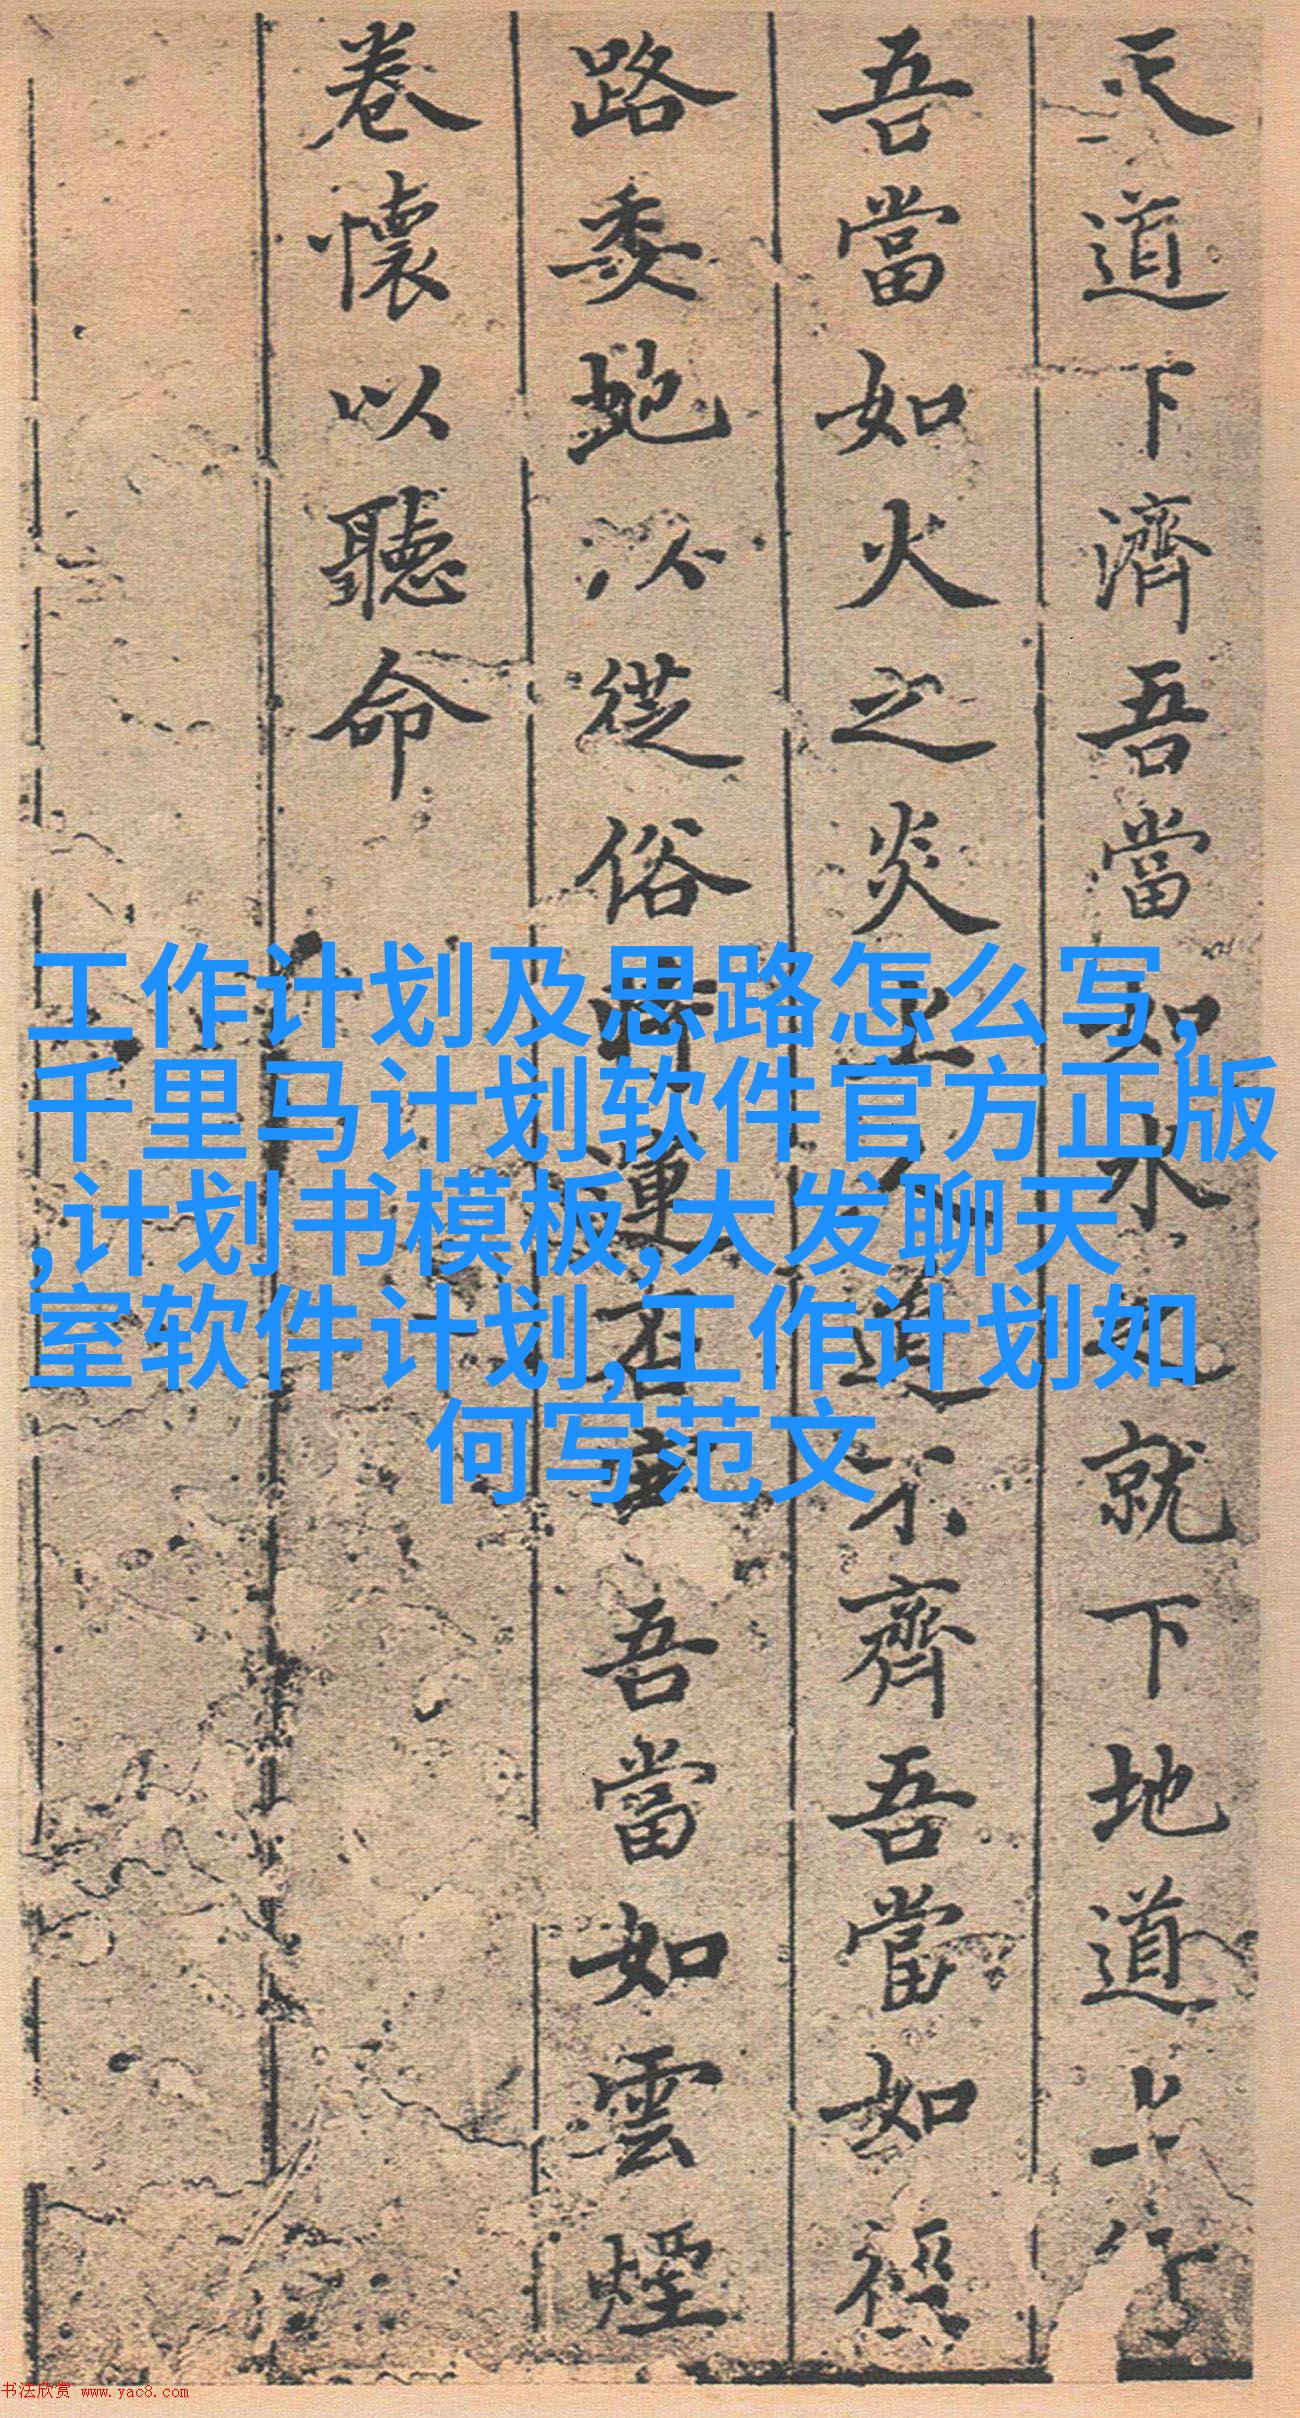 天道下濟吾當如水之就下地道上行
吾當如火之炎上人道不齊吾當如徑
路委虵以從俗時運否塞吾當如雲煙
卷懷以聽命
工作计划及思路怎么写,
千里马计划软件官方正版
,计划书模板,大发聊天
室软件计划,工作计划如
何写范文
书法欣赏 www.yac8.com